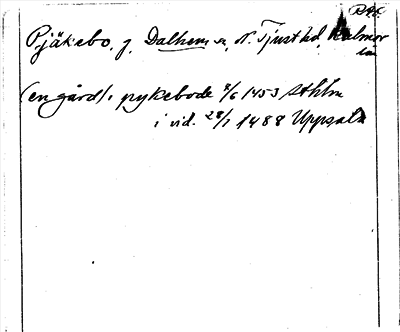 Pjäkebo, g. Dalhem sn, N. Tjust hd, Kalmar
län
(en gård) i pykebode 8/6 1453 Sthlm
i vid. 28/1 1488 Uppsala